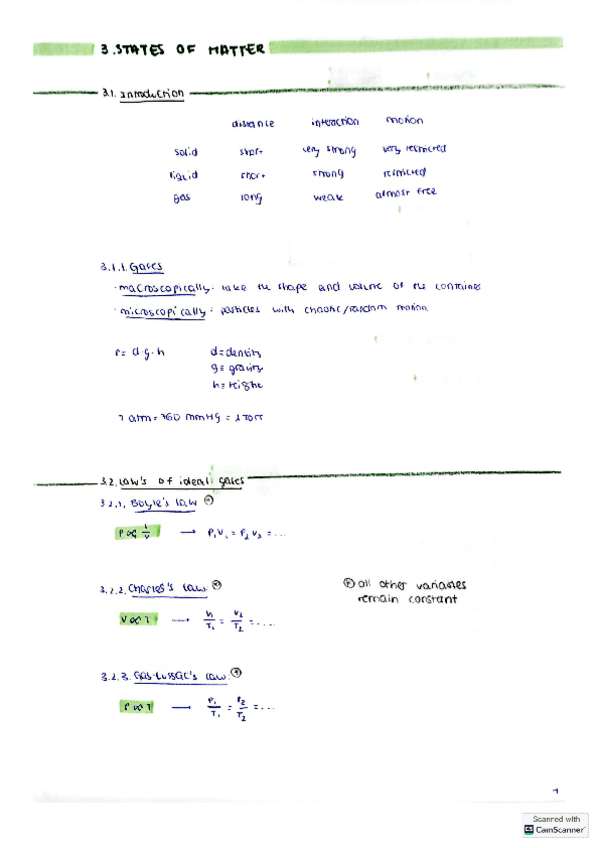 3. STATES OF MATTER
3.1. Introduction
distance interaction motion
solid short very strong very restricted
liquid short strong restricted
gas long weak almost free
3.1.1. Gases
· macroscopically: take the shape and volume of the container
· microscopically: particles with chaotic/random motion
P = d · g · h d = density
g = gravity
h = height
1 atm = 760 mmHg = 1 torr
3.2. Law's of ideal gases
3.2.1. Boyle's law *
P ∝ 1/V → P₁V₁ = P₂V₂ = ...
3.2.2. Charles's Law *
* all other variables
remain constant
V ∝ T → V₁/T₁ = V₂/T₂ = ....
3.2.3. Gas-Lussac's law *
P ∝ T → P₁/T₁ = P₂/T₂ = ...
1
Scanned with
CS CamScanner